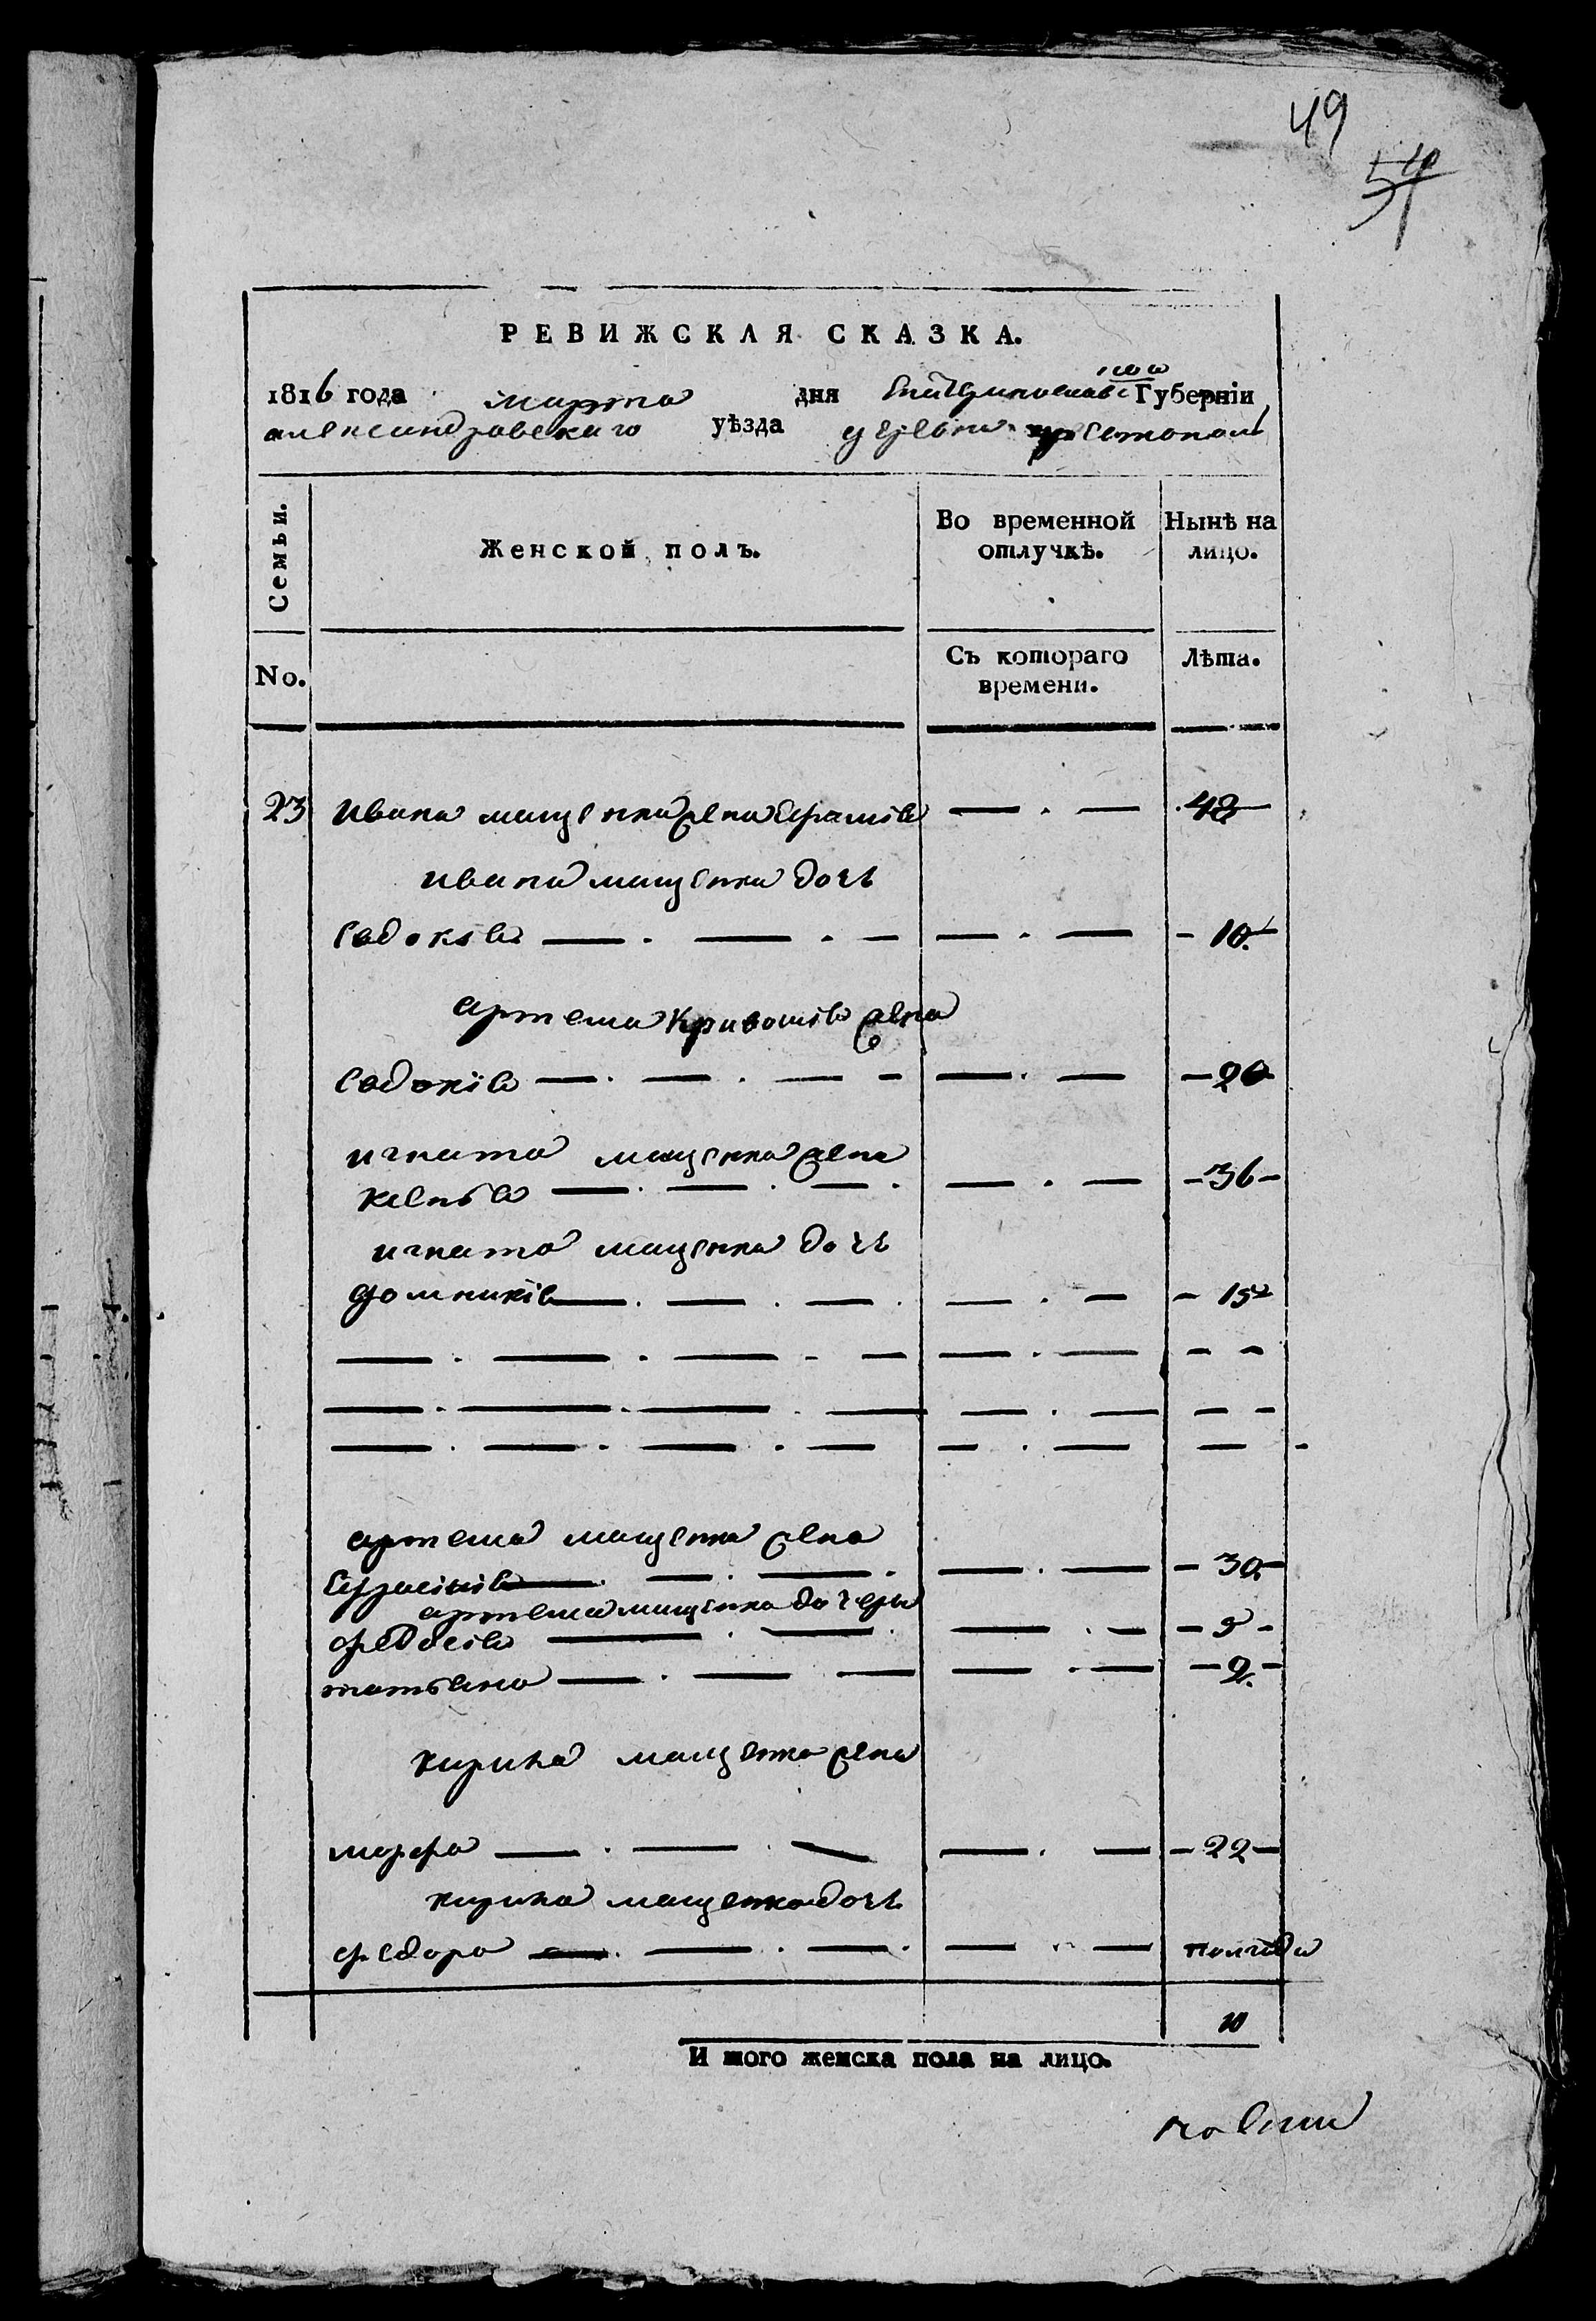 49
54
РЕВИЖСКАЯ СКАЗКА.
1816 года марта дня Екатеринославской Губерніи
александровскаго уѣзда деревни
Семьи.
Женской полъ.
Во временной отлучкѣ.
Нынѣ на лицо.
No.
Съ котораго времени.
Лѣта.
23 ивана мащенка жена — . — 48
ивана мащенка дочь
евдокія — . — . — — . — 10
артема жена
евдокія — . — . — — — . — 20
игната мащенка жена
— . — . — . — . — 36
игната мащенка дочь
домникія — . — . — . — . — 15
— . — . — . — — . — — —
— . — . — . — — . — — —
— . — . — . — — . — —
артема мащенка жена
— . — . — . — . — 30
артема мащенка дочери
федосія — . — . — . — 9
татьяна — . — — — . — 2
кирила мащенка жена
марфа — . — . — — . — 22
кирила мащенка дочь
федора — . — . — . — . — полгода
10
И того женска пола на лицо.